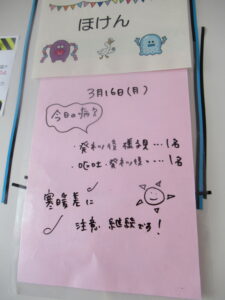 ほけん
3月16日(月)
今日の病欠
・発熱後様子見…1名
・嘔吐・発熱後…1名
寒暖差に
注意 継続だよ!